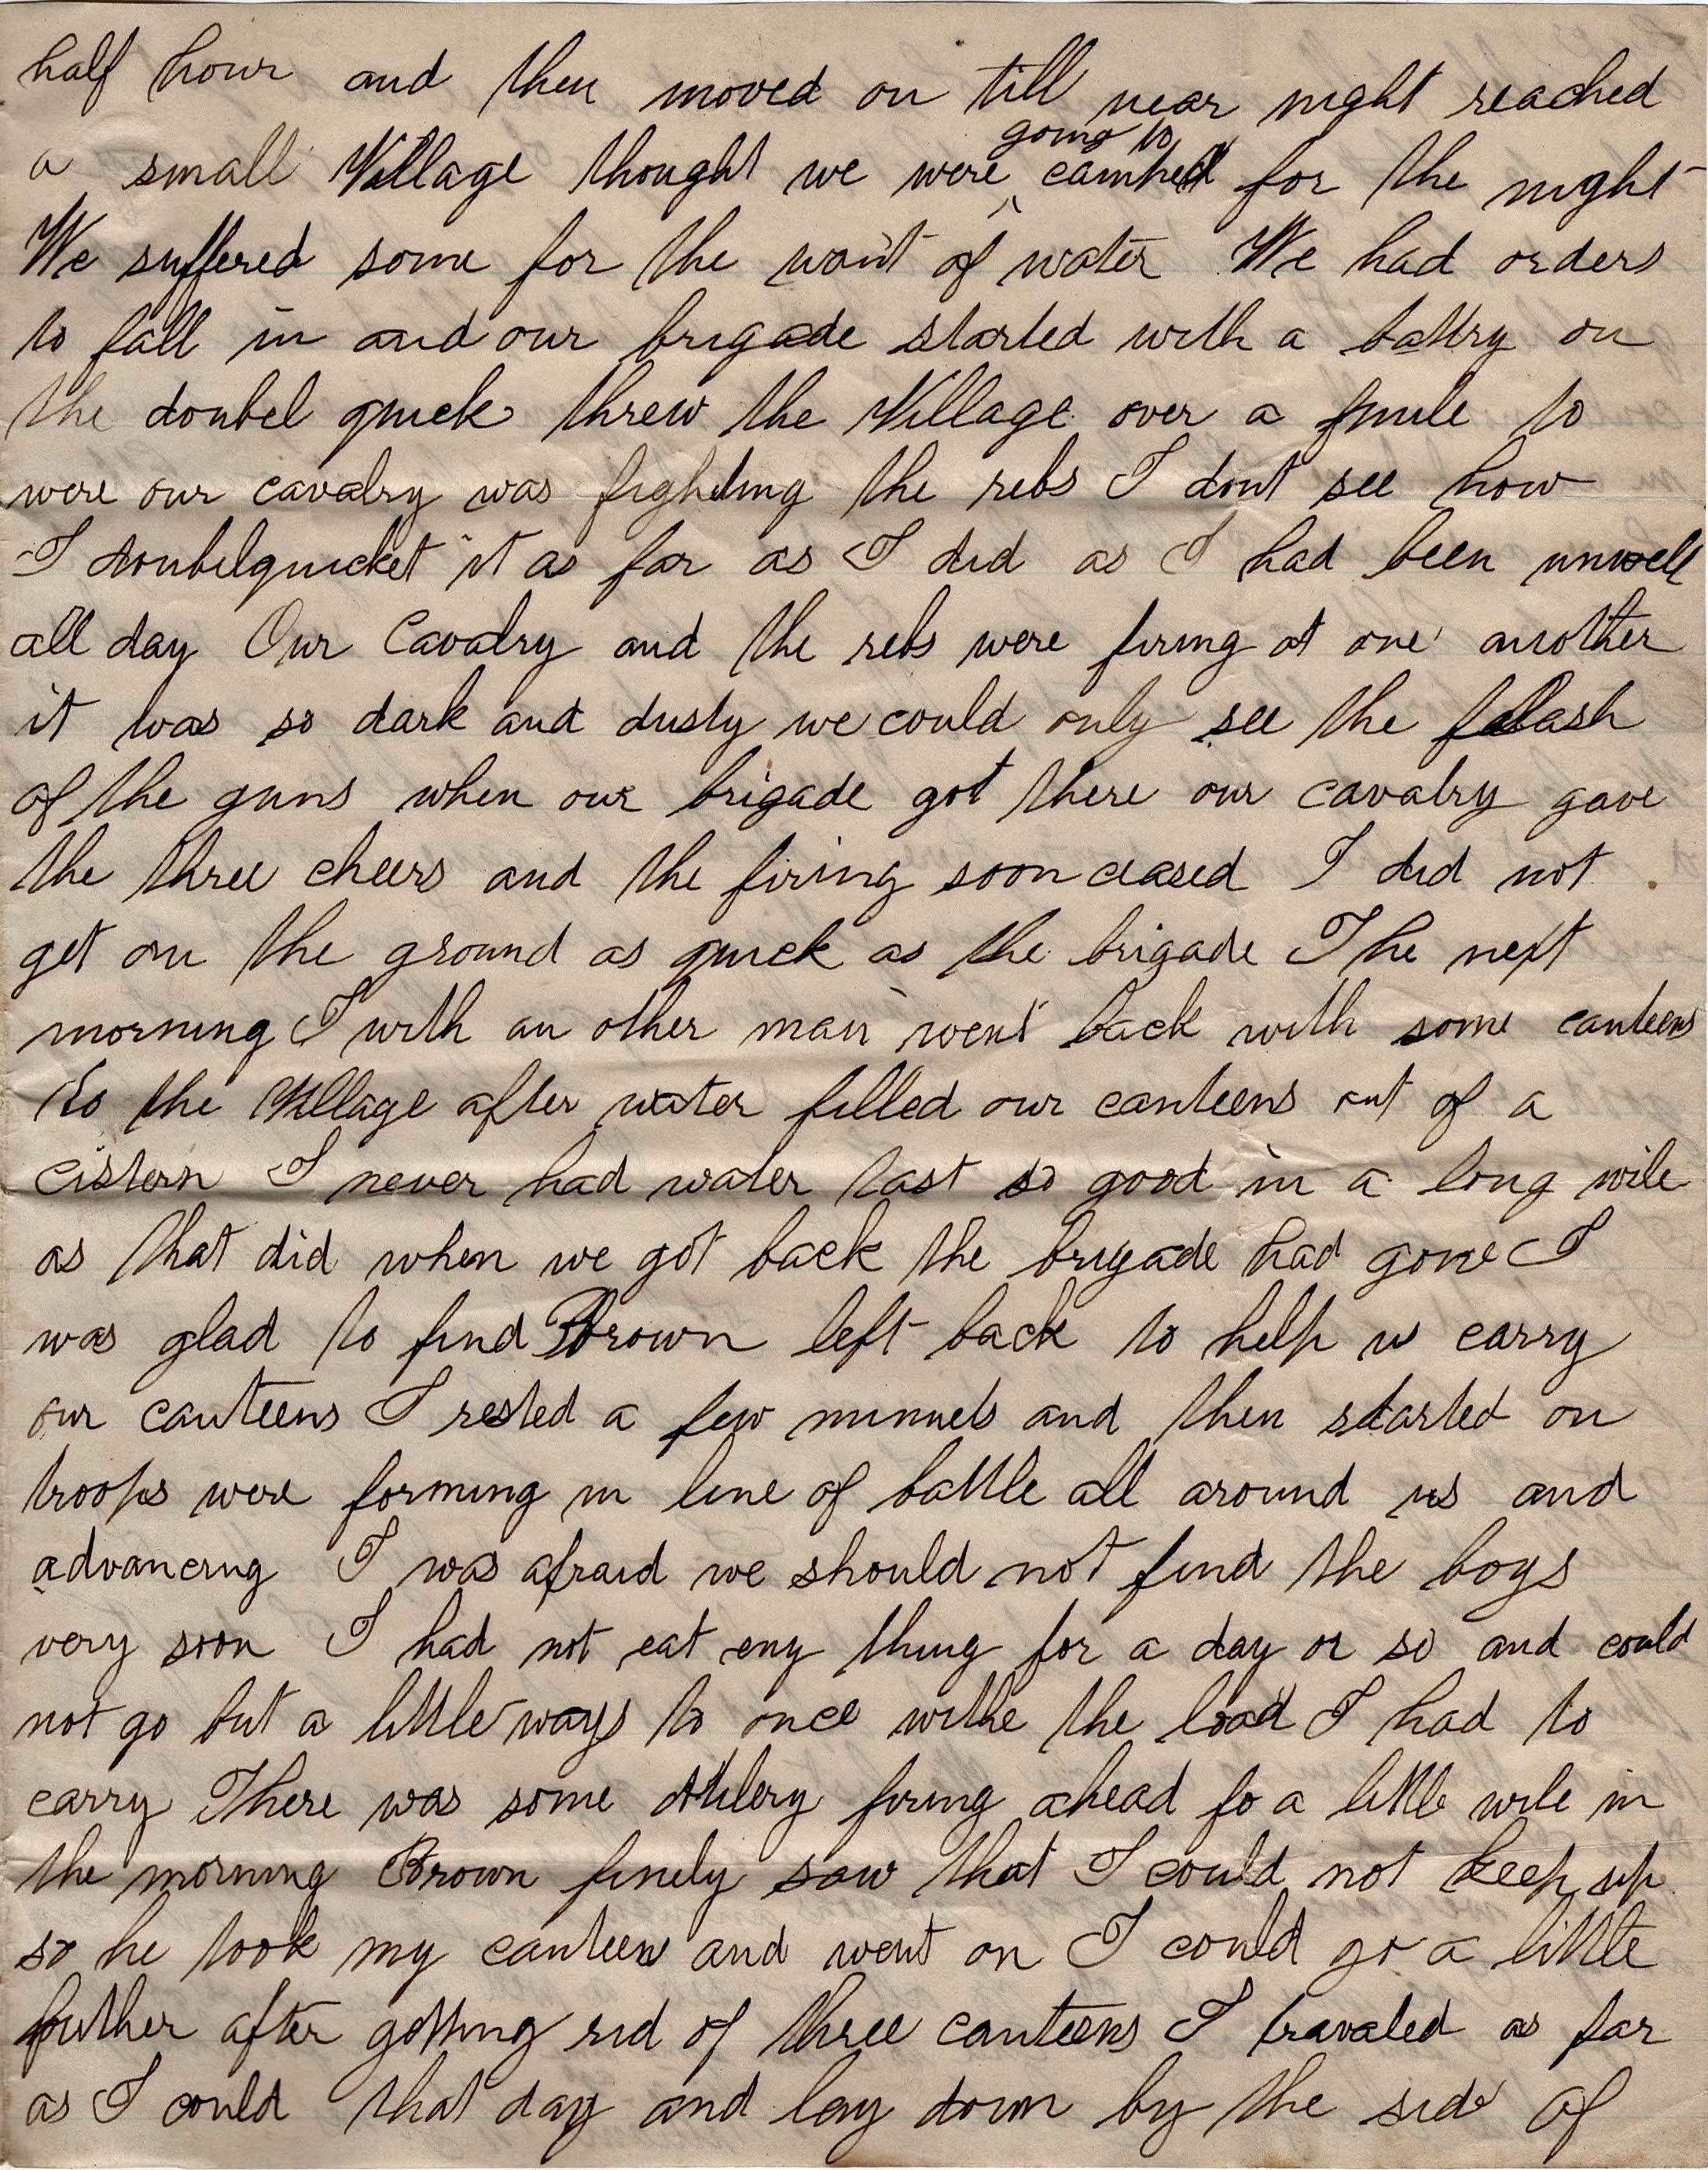 half hour and then moved on till near night reached
a small Village thought we were going to camp for the night
We suffered some for the want of water We had orders
to fall in and our brigade started with a battry on
the doubel quick threw the Village over a mile to
were our cavalry was fighting the rebs I dont see how
I doubelquicket it as far as I did as I had been unwell
all day Our Cavalry and the rebs were firing at one another
it was so dark and dusty we could only see the flash
of the guns when our brigade got there our cavalry gave
the three cheers and the firing soon ceased I did not
get on the ground as quick as the brigade The next
morning I with an other man went back with some canteens
to the Village after water filled our canteens out of a
cistern I never had water tast so good in a long wile
as that did when we got back the brigade had gone I
was glad to find Brown left back to help us carry
our canteens I rested a few minnets and then started on
troops were forming in line of battle all around us and
advancing I was afraid we should not find the boys
very soon I had not eat eny thing for a day or so and could
not go but a little ways to once withe the load I had to
carry There was some firing ahead fo a little wile in
the morning Brown finely saw that I could not keep up
so he took my canteens and went on I could go a little
futher after getting rid of three canteens I travaled as far
as I could that day and lay down by the side of